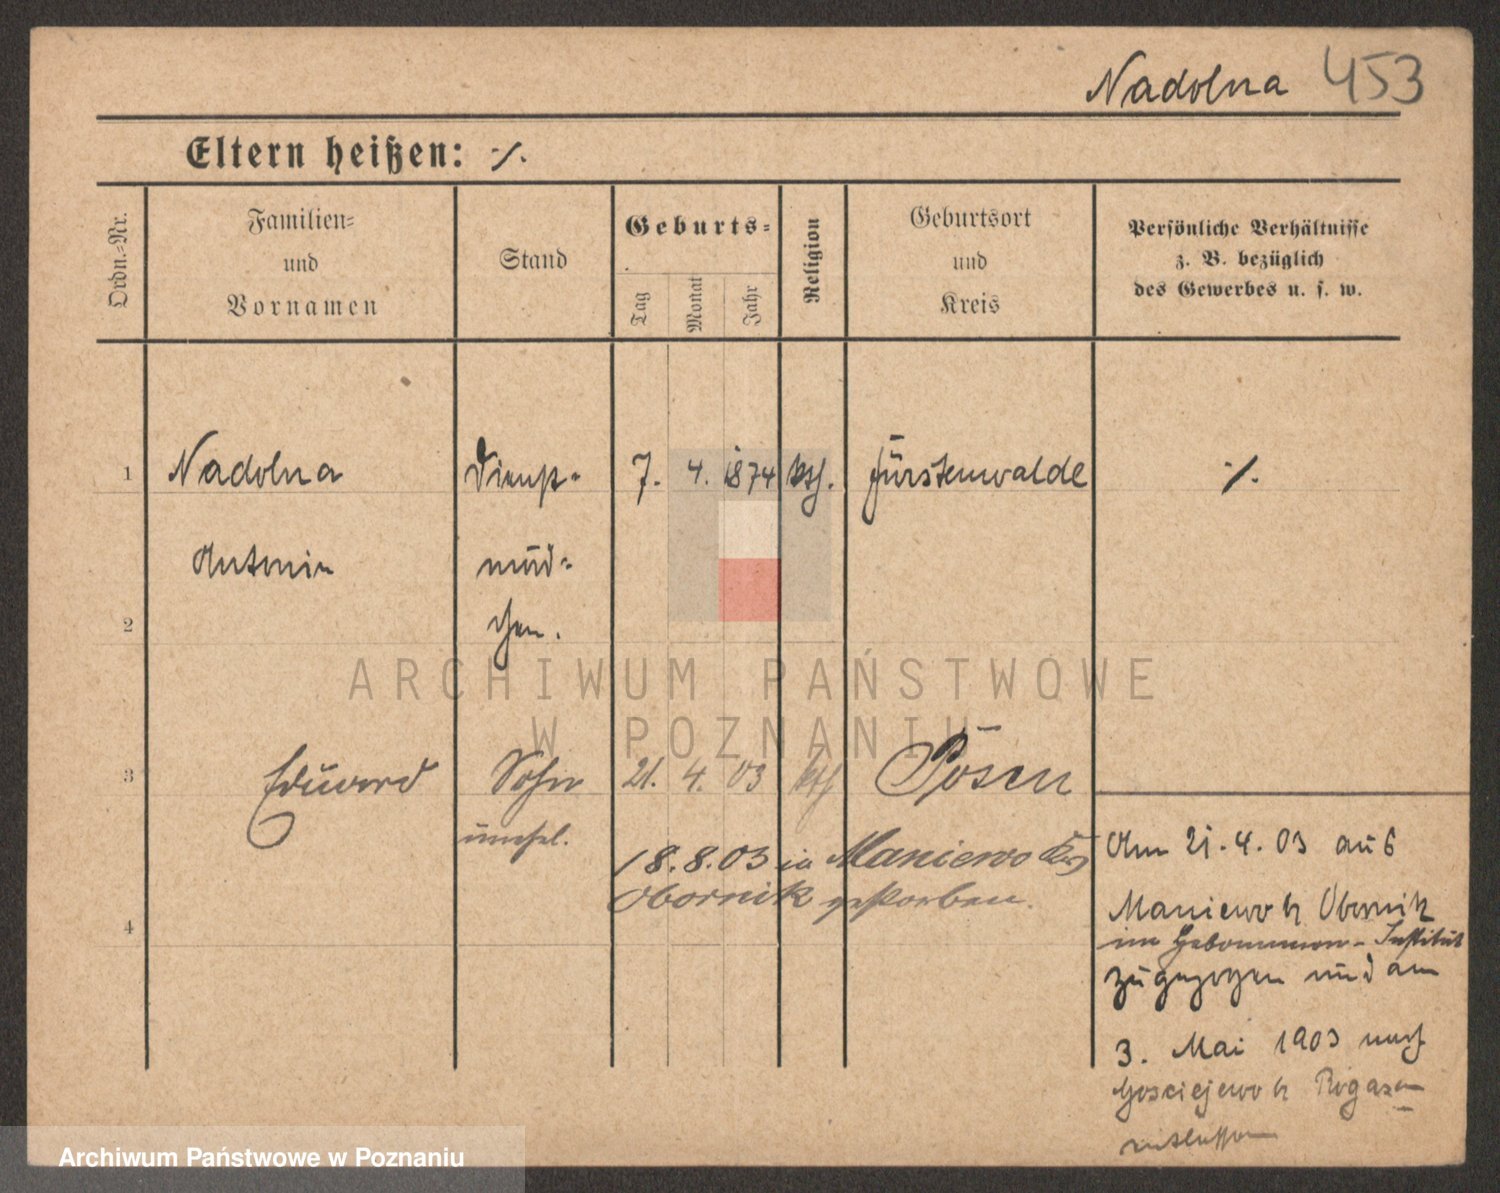 Nadolna 453
Eltern heißen: ./.
Ordn.-Nr.
Familien-
und
Vornamen
Stand
Geburts-
Tag
Monat
Jahr
Religion
Geburtsort
und
Kreis
Persönliche Verhältnisse
z. B. bezüglich
des Gewerbes u. s. w.
1 Nadolna Dienst- 7. 4. 1874 kth. Fürstenwalde ./.
Antonie mäd-
2 chen.
ARCHIWUM PAŃSTWOWE
W POZNANIU
3 Eduard Sohn 21. 4. 03 kth Posen
unehel.
18.8.03 in Maniewo Krs
Obornik gestorben.
4
Am 21.4.03 aus
Maniewo b Obornik
im Hebammen-Institut
zugezogen und am
3. Mai 1903 nach
Gosciejewo b Rogasen
entlassen
Archiwum Państwowe w Poznaniu